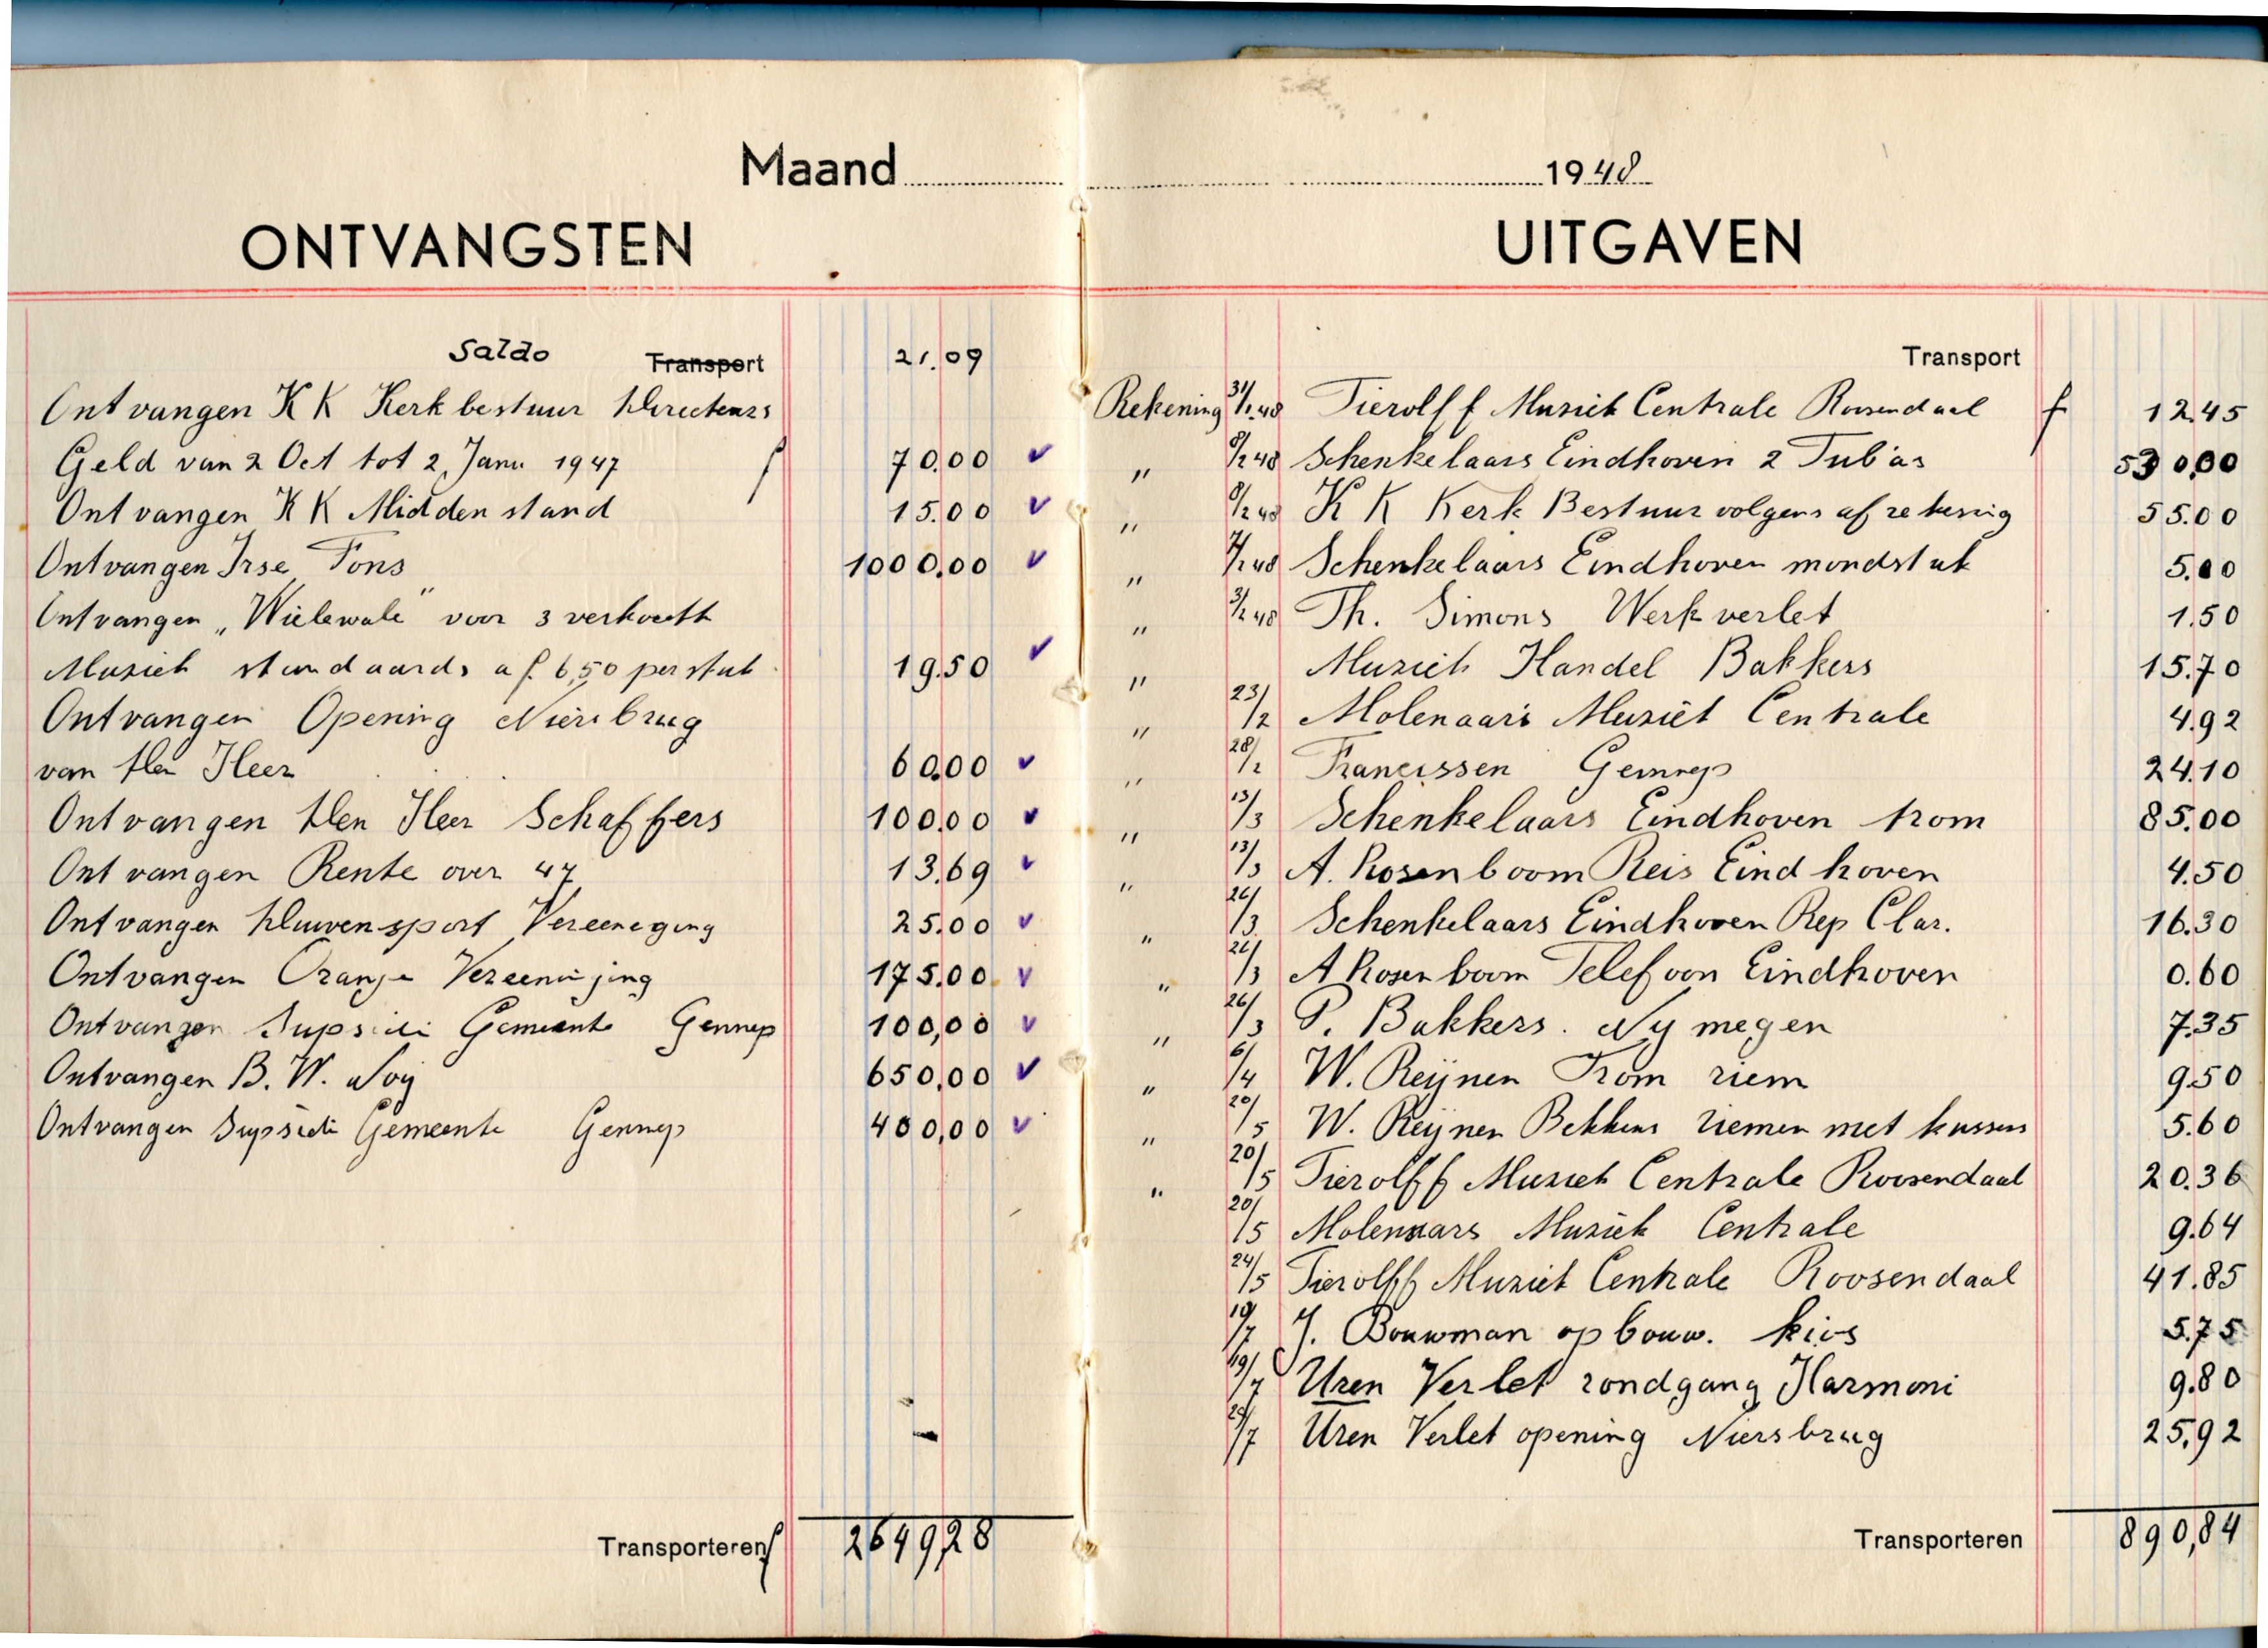 Maand 1948
ONTVANGSTEN
Saldo Transport 21.09
Ontvangen K K Kerk bestuur Directeurs
Geld van 2 Oct tot 2 Janu 1947 f 70.00
Ontvangen K K Middenstand 15.00
Ontvangen Irse Fons 1000.00
Ontvangen „Wielewale" voor 3 verkocht
Muziek standaards a f. 6,50 per stuk 19.50
Ontvangen Opening Niersbrug
van den Heer 60.00
Ontvangen den Heer Schaffers 100.00
Ontvangen Rente over 47 13.69
Ontvangen Duivensport Vereeneging 25.00
Ontvangen Oranje Vereeniging 175.00
Ontvangen Supsidi Gemeente Gennep 100,00
Ontvangen B. W. Noij 650,00
Ontvangen Supsidi Gemeente Gennep 400,00
Transporteren f 2649,28
UITGAVEN
Transport
Rekening 31/1.48 Tierolff Muziek Centrale Roosendaal f 12.45
„ 8/2 48 Schenkelaars Eindhoven 2 Tuba's 530,00
„ 8/2 48 K K Kerk Bestuur volgens afrekenig 55.00
„ 7/2 48 Schenkelaars Eindhoven mondstuk 5.00
„ 3/2 48 Th. Simons Werk verlet 1.50
„ Muziek Handel Bakkers 15.70
„ 23/2 Molenaars Muziek Centrale 4.92
„ 28/2 Francissen Gennep 24.10
„ 13/3 Schenkelaars Eindhoven trom 85.00
„ 13/3 A. Rosenboom Reis Eindhoven 4.50
„ 26/3 Schenkelaars Eindhoven Rep Clar. 16.30
„ 26/3 A Rosenboom Telefoon Eindhoven 0.60
„ 26/3 P. Bakkers. Nymegen 7.35
„ 6/4 W. Reijnen Trom riem 9.50
„ 20/5 W. Reijnen Bekkens riemen met kussens 5.60
„ 20/5 Tierolff Muziek Centrale Roosendaal 20.36
20/5 Molenaars Muziek Centrale 9.64
24/5 Tierolff Muziek Centrale Roosendaal 41.85
19/7 J. Bouwman opbouw. kios 5.75
19/7 Uren Verlet rondgang Harmoni 9.80
29/7 Uren Verlet opening Niersbrug 25,92
Transporteren 890,84